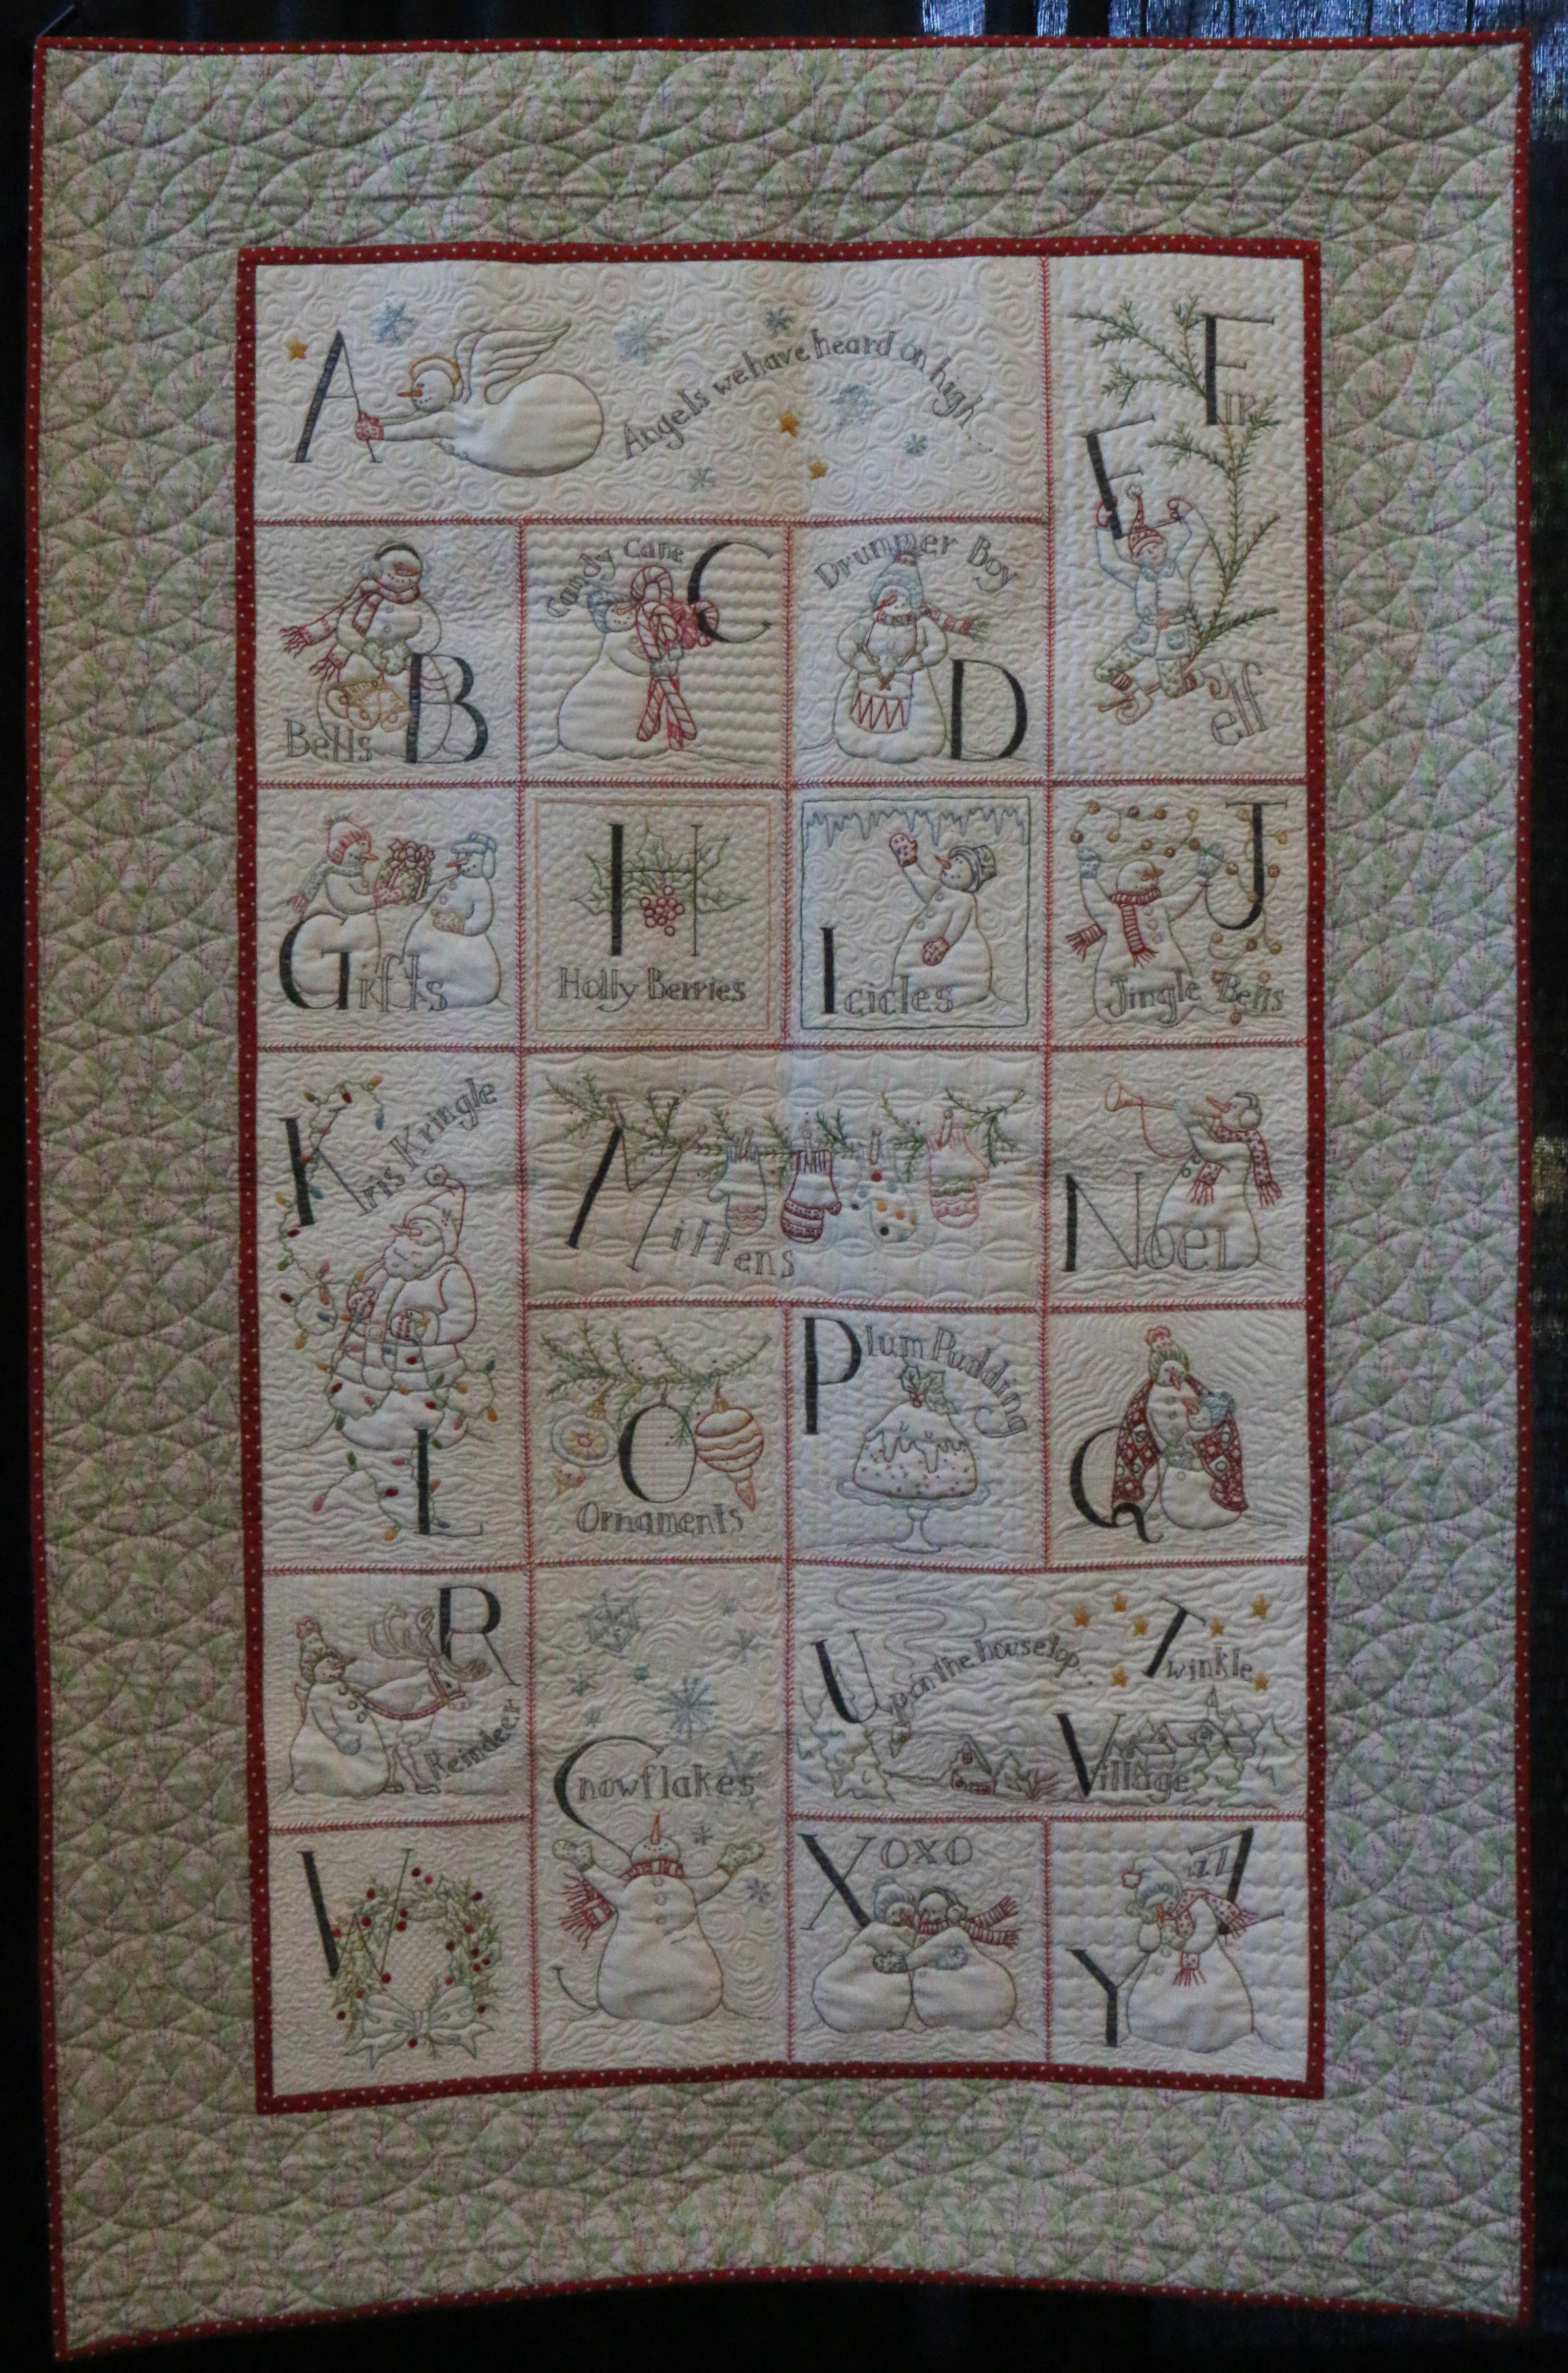 A
Angels we have heard on high...
Fir
E
elf
B
Bells
Candy Cane
C
Drummer Boy
D
Gifts
H
Holly Berries
Icicles
J
Jingle Bells
Kris Kringle
L
Mittens
Noel
O
Ornaments
Plum Pudding
Q
R
Reindeer
Snowflakes
Up on the housetop...
Twinkle
Village
W
XOXO
Y